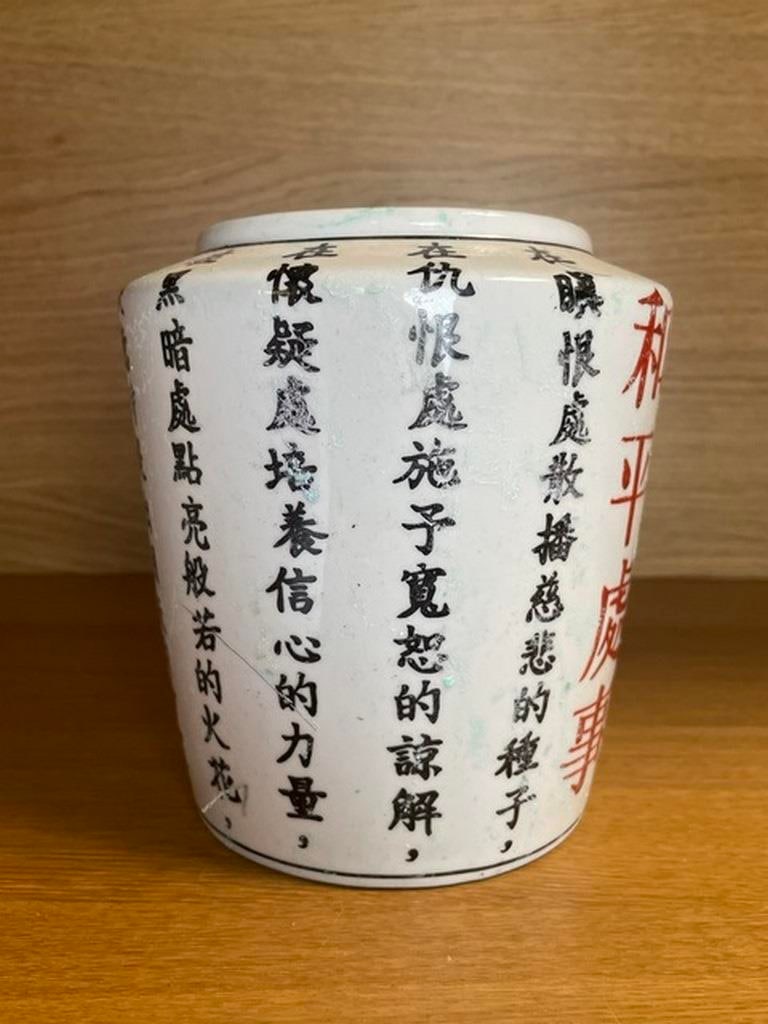 和平處事
在瞋恨處散播慈悲的種子，
在仇恨處施予寬恕的諒解，
在懷疑處培養信心的力量，
在黑暗處點亮般若的火花，